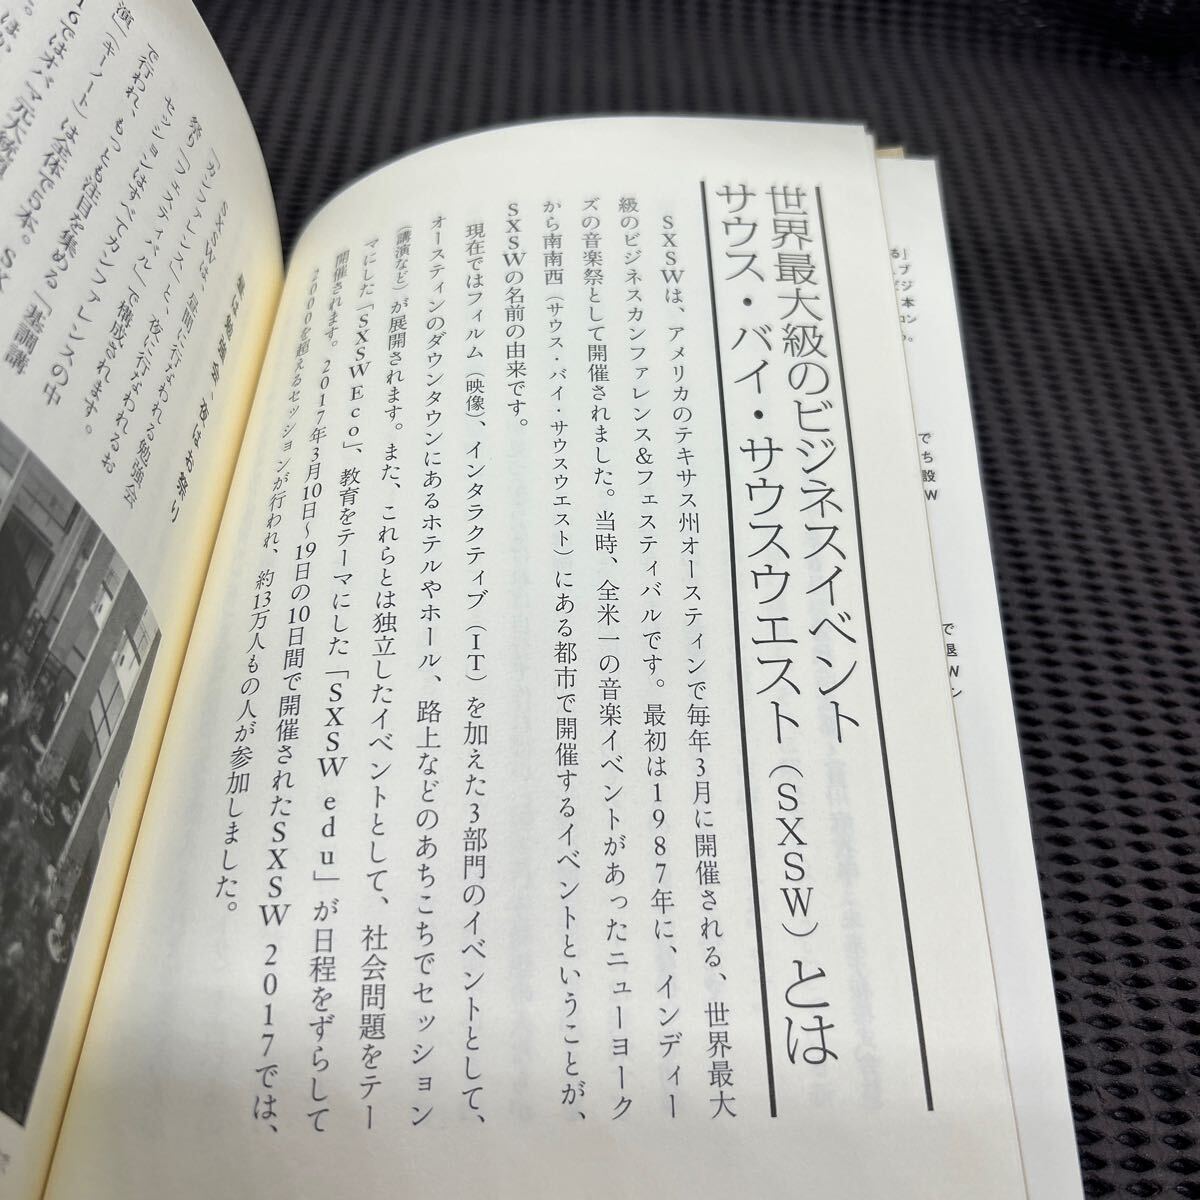 世界最大級のビジネスイベント
サウス・バイ・サウスウエスト（SXSW）とは
SXSWは、アメリカのテキサス州オースティンで毎年3月に開催される、世界最大
級のビジネスカンファレンス&フェスティバルです。最初は1987年に、インディー
ズの音楽祭として開催されました。当時、全米一の音楽イベントがあったニューヨーク
から南南西（サウス・バイ・サウスウエスト）にある都市で開催するイベントということが、
SXSWの名前の由来です。
現在ではフィルム（映像）、インタラクティブ（IT）を加えた3部門のイベントとして、
オースティンのダウンタウンにあるホテルやホール、路上などのあちこちでセッション
（講演など）が展開されます。また、これらとは独立したイベントとして、社会問題をテー
マにした「SXSW Eco」、教育をテーマにした「SXSW edu」が日程をずらして
開催されます。2017年3月10日〜19日の10日間で開催されたSXSW 2017では、
2000を超えるセッションが行われ、約13万人もの人が参加しました。
SXSWは、昼間に行なわれる勉強会
「カンファレンス」と、夜に行なわれるお
祭り「フェスティバル」で構成されます。
セッションはすべてカンファレンスの中
で行われ、もっとも注目を集める「基調講
演」（キーノート）は全体で5本。SX
16ではオバマ元大統領